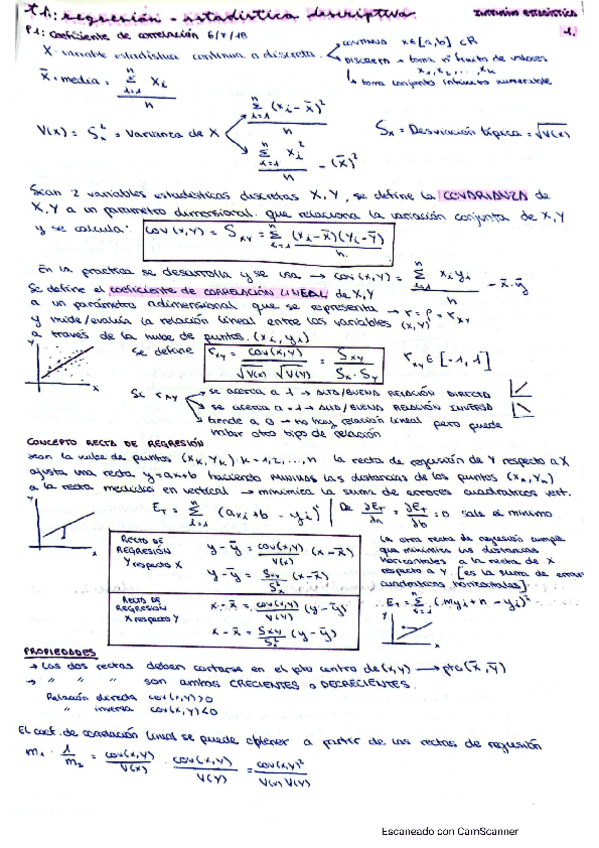 T.1: regresión - estadística descriptiva.
P1: Coeficiente de correlación
-1.
X variable estadística continua o discreta.
continua x∈[a,b] ⊂ R
DISCRETA → toma nº finito de valores
x₁, x₂, ..., xₖ
toma conjunto infinito numerable
X̄ = media = Σ(i=1,n) Xi / n
V(X) = Sx² = Varianza de X
Σ(i=1,n) (xi - x̄)² / n
Σ(i=1,n) xi² / n - (x̄)²
Sx = Desviación típica = √V(X)
Sean 2 variables estadísticas discretas X, Y, se define la COVARIANZA de
X, Y a un parámetro dimensional que relaciona la variación conjunta de X, Y
y se calcula: cov(x,y) = Sxy = Σ(i=1,n) (xi-x̄)(yi-ȳ) / n
En la practica se desarrolla y se usa → cov(x,y) = Σ(i=1,n) xi yi / n - x̄·ȳ
Se define el coeficiente de CORRELACIÓN LINEAL de X,Y
a un parámetro adimensional que se representa → r = ρ = rxy
y mide/evalúa la relación lineal entre las variables (x,y)
a través de la nube de puntos. (xi, yi)
Y
x
Se define rxy = cov(x,y) / √V(x) √V(y) = Sxy / Sx·Sy
rxy ∈ [-1, 1]
Si rxy
se acerca a 1 → ALTA/BUENA RELACIÓN DIRECTA
se acerca a -1 → ALTA/BUENA RELACIÓN INVERSA
tiende a 0 → no hay relación lineal pero puede
haber otro tipo de relación
CONCEPTO RECTA DE REGRESIÓN
Sean la nube de puntos (xk, yk) k=1,2,...,n la recta de regresión de Y respecto a X
ajusta una recta y=ax+b haciendo MINIMAS las distancias de los puntos (xn, yn)
a la recta medidas en vertical → minimiza la suma de errores cuadráticos vert.
Y
x
ET = Σ(i=1,n) (axi+b - yi)²
De ∂ET/∂a = ∂ET/∂b = 0 sale el mínimo
RECTA DE REGRESIÓN Y respecto X
y-ȳ = cov(x,y)/V(x) (x-x̄)
y-ȳ = Sxy/Sx² (x-x̄)
RECTA DE REGRESIÓN X respecto Y
x-x̄ = cov(x,y)/V(y) (y-ȳ)
x-x̄ = Sxy/Sy² (y-ȳ)
La otra recta de regresión cumple
que minimiza las distancias
horizontales a la recta de X
respecto a Y. [es la suma de error
cuadráticos horizontales]
ET = Σ(i=1,n) (myi+n - xi)²
Y
x
PROPIEDADES
→ Las dos rectas deben cortarse en el pto centro de (x,y) → pto(x̄,ȳ)
→ " " " son ambas CRECIENTES o DECRECIENTES.
Relación directa cov(x,y)>0
" inversa cov(x,y)<0
El coef. de correlación lineal se puede obtener a partir de las rectas de regresión
m₁ · 1/m₂ = cov(x,y)/V(x) · cov(x,y)/V(y) = cov(x,y)²/V(x)V(y)
Escaneado con CamScanner